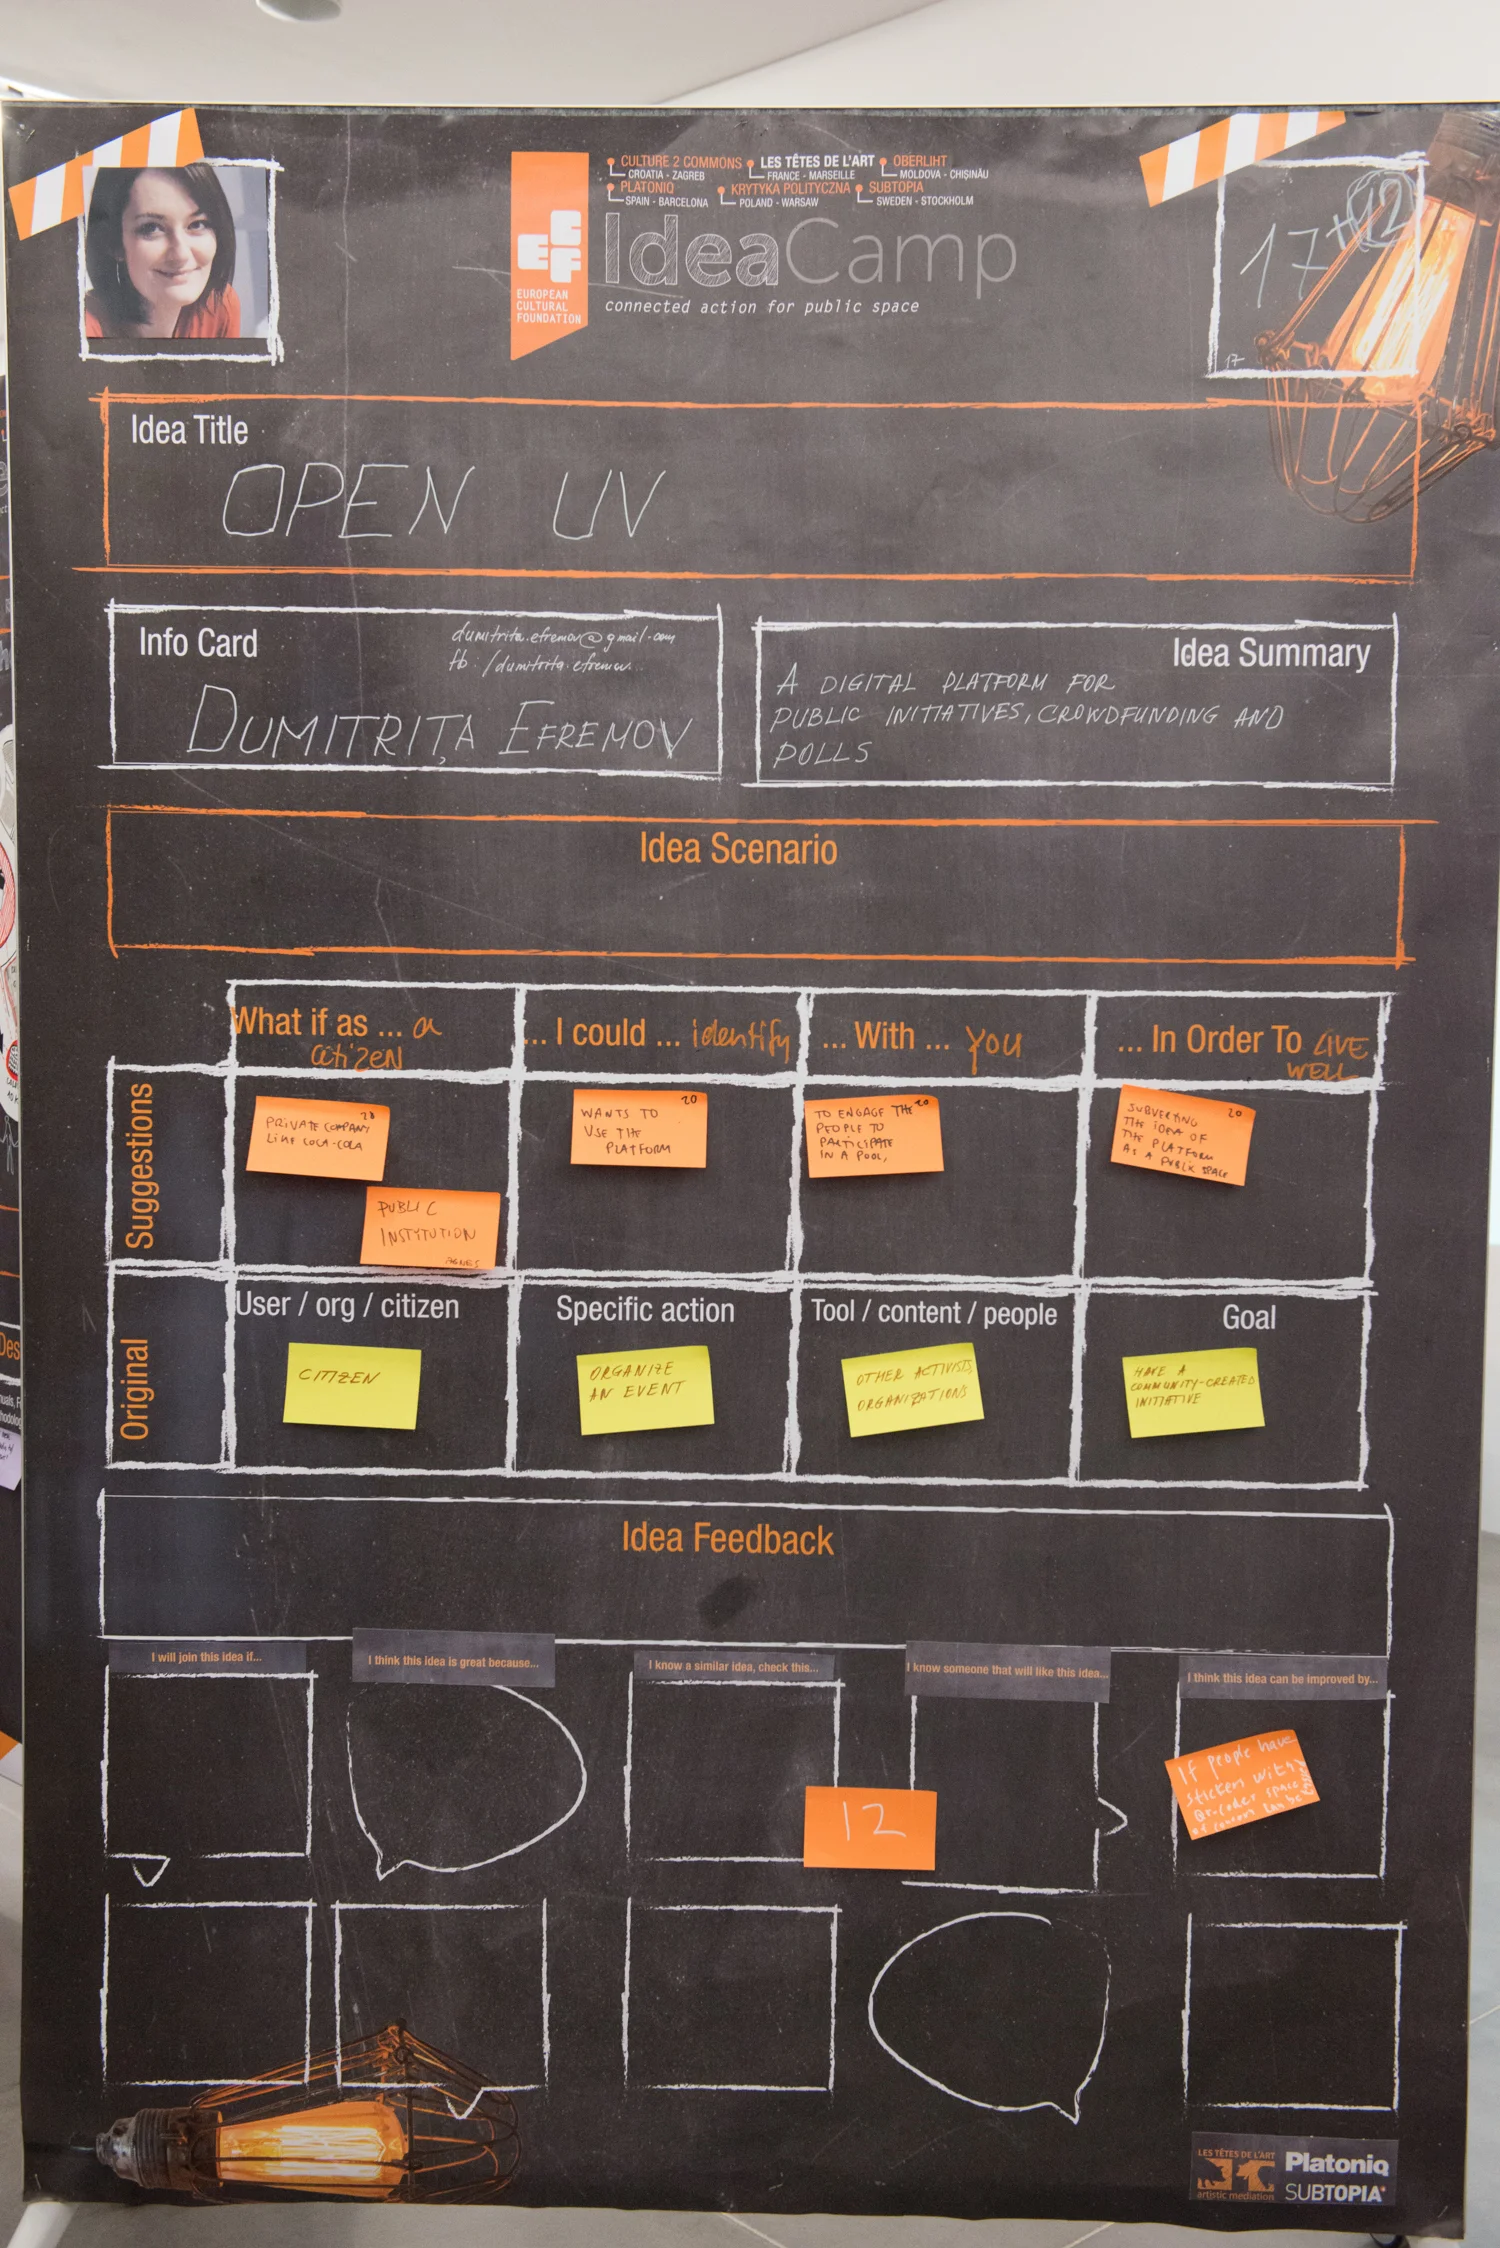 CULTURE 2 COMMONS
CROATIA - ZAGREB
LES TÊTES DE L'ART
FRANCE - MARSEILLE
OBERLIHT
MOLDOVA - CHIȘINĂU
PLATONIQ
SPAIN - BARCELONA
KRYTYKA POLITYCZNA
POLAND - WARSAW
SUBTOPIA
SWEDEN - STOCKHOLM
ECF
EUROPEAN
CULTURAL
FOUNDATION
IdeaCamp
connected action for public space
17+12
17
Idea Title
OPEN UV
Info Card
dumitrita.efremov@gmail.com
fb: /dumitrita.efremov
DUMITRIȚA EFREMOV
Idea Summary
A DIGITAL PLATFORM FOR
PUBLIC INITIATIVES, CROWDFUNDING AND
POLLS
Idea Scenario
What if as ... a
citizEN
... I could ... identify
... With ... you
... In Order To LIVE
WELL
Suggestions
28
PRIVATE COMPANY
LIKE COCA-COLA
PUBLIC
INSTITUTION
AGNES
20
WANTS TO
USE THE
PLATFORM
20
TO ENGAGE THE
PEOPLE TO
PARTICIPATE
IN A POOL,
20
SUBVERTING
THE IDEA OF
THE PLATFORM
AS A PUBLIC SPACE
Original
User / org / citizen
CITIZEN
Specific action
ORGANIZE
AN EVENT
Tool / content / people
OTHER ACTIVISTS,
ORGANIZATIONS
Goal
HAVE A
COMMUNITY-CREATED
INITIATIVE
Idea Feedback
I will join this idea if...
I think this idea is great because...
I know a similar idea, check this...
I know someone that will like this idea...
I think this idea can be improved by...
12
If people have
stickers with
Qr-codes space
of concern can be
LES TÊTES DE L'ART
artistic mediation
Platoniq
SUBTOPIA